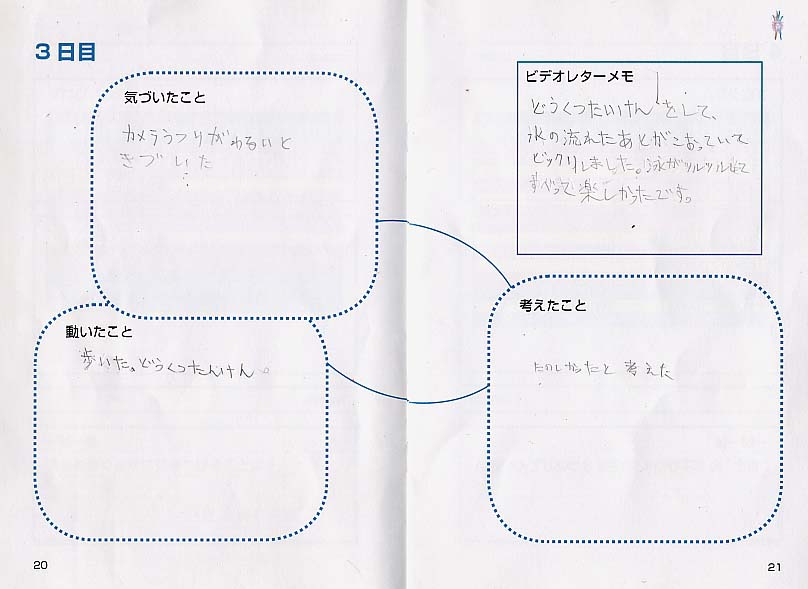 3日目
気づいたこと
カメラうつりがわるいと
きづいた
動いたこと
歩いた。どうくつたんけん。
20
ビデオレターメモ
どうくつたいけんをして、
水の流れたあとがこおっていて
ビックリしました。氷がツルツルして
すべって楽しかったです。
考えたこと
たのしかったと考えた
21